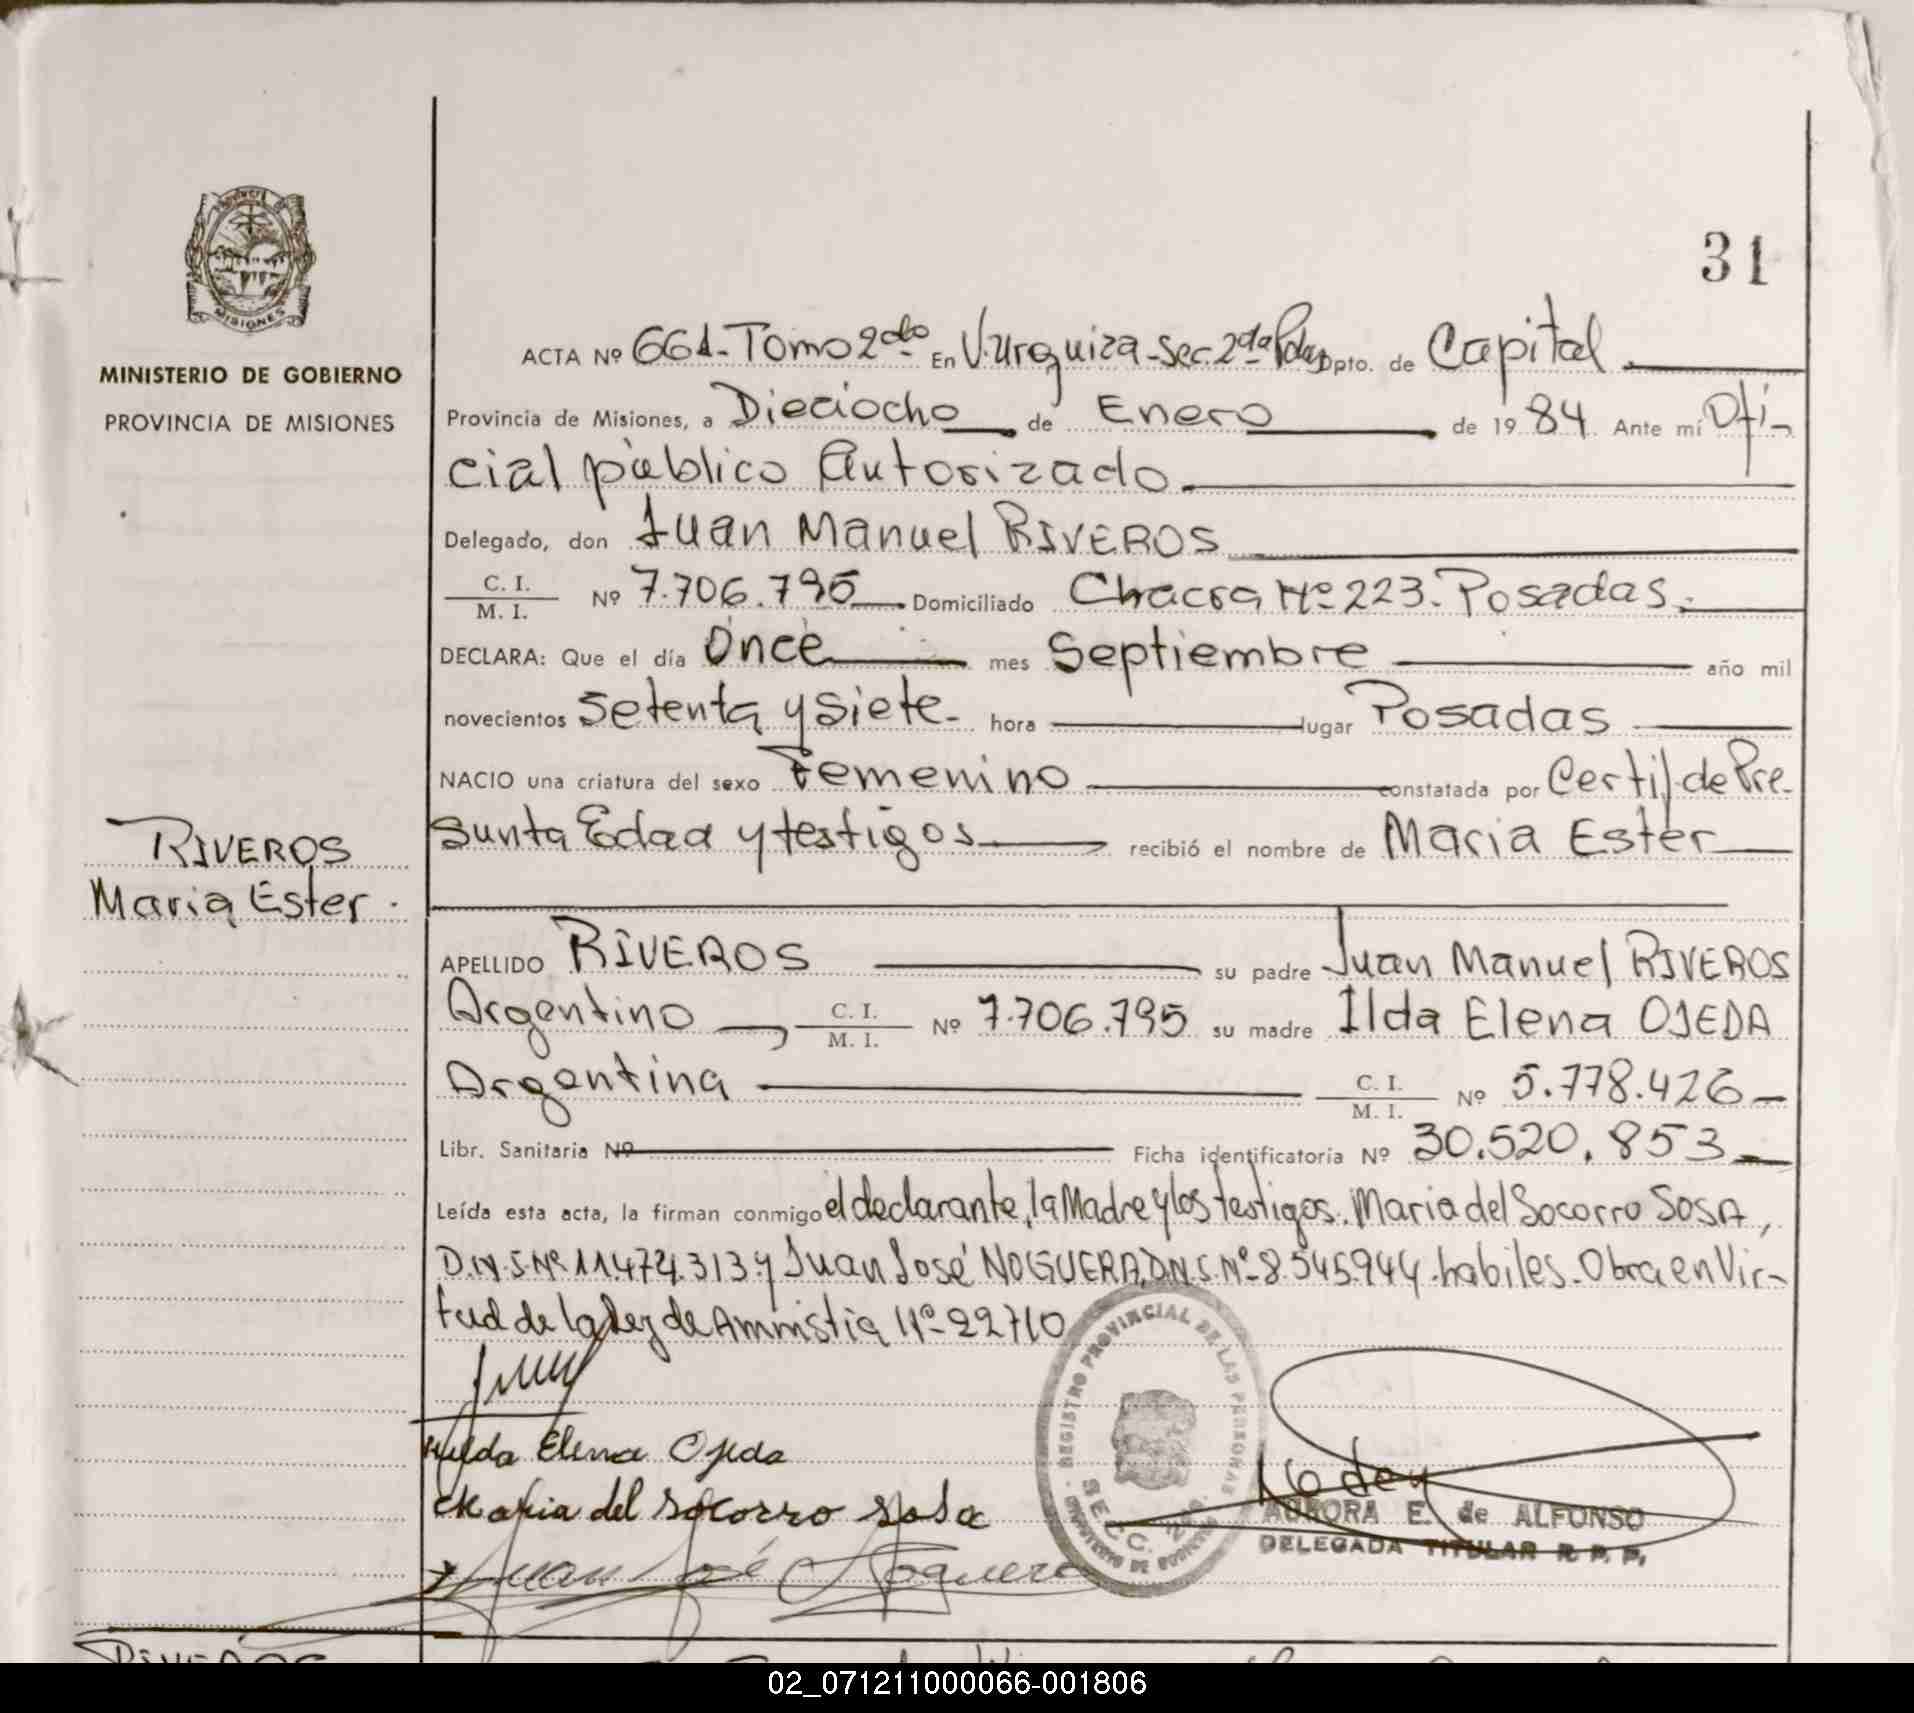 31
MISIONES
MINISTERIO DE GOBIERNO
PROVINCIA DE MISIONES
RIVEROS
Maria Ester.
ACTA Nº 661-Tomo 2do En V.Urquiza-Sec.2da Pdas Dpto. de Capital
Provincia de Misiones, a Dieciocho de Enero de 1984. Ante mí Ofi-
cial pùblico Autorizado.
Delegado, don Juan Manuel RIVEROS
C. I.
M. I.
Nº 7.706.795 Domiciliado Chacra Nº 223. Posadas.
DECLARA: Que el día Once mes Septiembre año mil
novecientos setenta y siete- hora lugar Posadas
NACIO una criatura del sexo Femenino constatada por Certif. de Pre-
sunta Edad y testigos recibió el nombre de Maria Ester
APELLIDO RIVEROS su padre Juan Manuel RIVEROS
Argentino, C. I.
M. I.
Nº 7.706.795 su madre Ilda Elena OJEDA
Argentina C. I.
M. I.
Nº 5.778.426-
Libr. Sanitaria Nº Ficha identificatoria Nº 30.520.853
Leída esta acta, la firman conmigo el declarante, la Madre y los testigos. Maria del Socorro SOSA,
D.N.I. Nº 11.474.313 y Juan José NOGUERA, D.N.I. Nº 8.545.944. habiles. Obra en Vir-
tud de la Ley de Amnistia Nº 22710
REGISTRO PROVINCIAL DE LAS PERSONAS
SECC. 2
MINISTERIO DE GOBIERNO
Hilda Elena Ojeda
Maria del Socorro Sosa
Juan José Noguera
AURORA E. de ALFONSO
DELEGADA TITULAR R. P. P.
RIVEROS
02_071211000066-001806